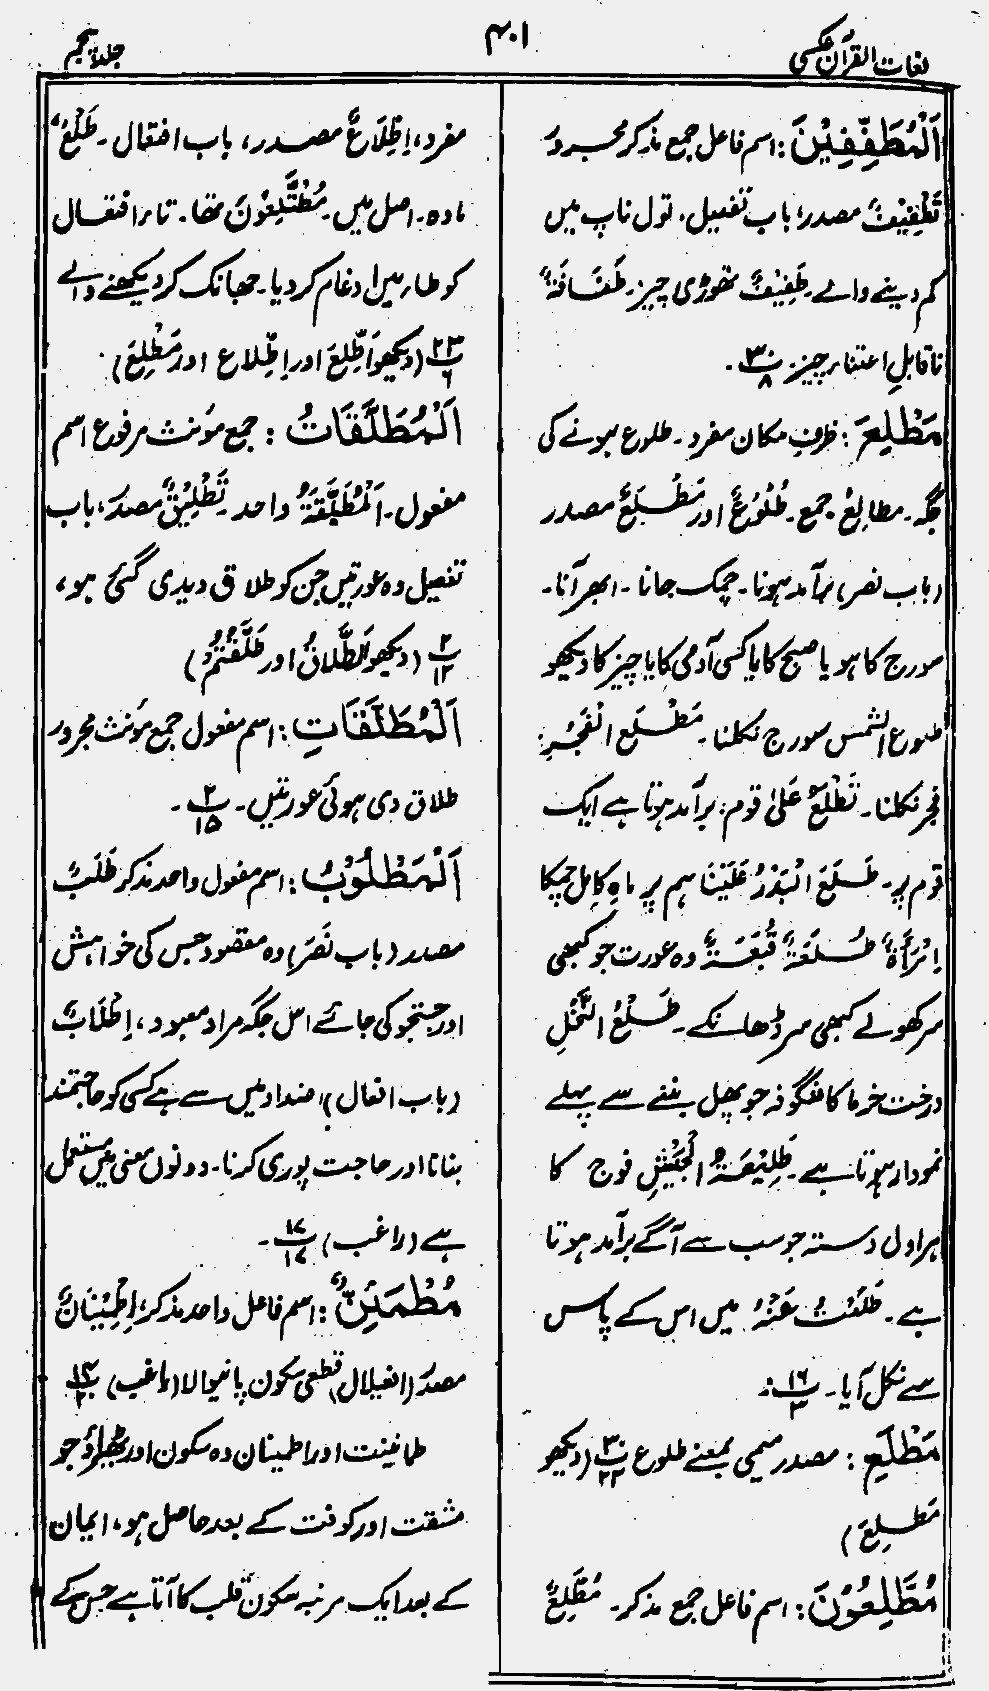 لغات القرآن عکسی
۴۰۱
جلد پنجم
اَلْمُطَفِّفِیْنَ: اسم فاعل جمع مذکر مجرور
تَطْفِیْفٌ مصدر، باب تفعیل، تول ناپ میں
کم دینے والے۔ طَفِیْفٌ تھوڑی چیز۔ طَفَافَۃٌ
ناقابلِ اعتناء چیز۔ ۳۰/۸۔
مَطْلِعَ: ظرف مکان مفرد۔ طلوع ہونے کی
جگہ۔ مطالِعُ جمع۔ طُلُوْعٌ اور مَطْلَعٌ مصدر
(باب نصر) برآمد ہونا۔ چمک جانا۔ ابھر آنا۔
سورج کا ہو یا صبح کا یا کسی آدمی کا یا چیز کا دیکھو
طلوع الشمس سورج نکلنا۔ مَطْلَعِ الْفَجْرِ:
فجر نکلنا۔ تَطْلُعُ عَلیٰ قوم: برآمد ہوتا ہے ایک
قوم پر۔ طَلَعَ الْبَدْرُ عَلَیْنَا ہم پر ماہِ کامل چمکا
اِمْرَأَۃٌ طُلَعَۃٌ قُبَعَۃٌ وہ عورت جو کبھی
سر کھولے کبھی سر ڈھانکے۔ طَلْعُ النَّخْلِ
درخت خرما کا شگوفہ جو پھل بننے سے پہلے
نمودار ہوتا ہے۔ طَلِیْعَۃُ الْجَیْشِ فوج کا
ہراول دستہ جو سب سے آگے برآمد ہوتا
ہے۔ طَلَعْتُ عَنْہُ میں اس کے پاس
سے نکل آیا۔ ۱۶/۳۔
مَطْلَعِ: مصدر میمی بمعنے طلوع ۳۰/۲۲ (دیکھو
مَطلِعَ)
مُطَّلِعُوْنَ: اسم فاعل جمع مذکر۔ مُطَّلِعٌ
مفرد، اِطِّلَاعٌ مصدر، باب افتعال۔ طَلْعٌ
مادہ۔ اصل میں۔ مُطْتَلِعُوْنَ تھا۔ تاء افتعال
کو طاء میں ادغام کر دیا۔ جھانک کر دیکھنے والے
۲۳/۶ (دیکھو اَطَّلِعَ اور اِطِّلاع اور مَطْلِعَ)
اَلْمُطَلَّقَاتُ: جمع مؤنث مرفوع اسم
مفعول۔ اَلْمُطَلَّقَۃُ واحد۔ تَطْلِیْقٌ مصدر، باب
تفعیل وہ عورتیں جن کو طلاق دیدی گئی ہو،
۲/۱۲ (دیکھو الطَّلَاقُ اور طَلَّقْتُمْ)
اَلْمُطَلَّقَاتِ: اسم مفعول جمع مؤنث مجرور
طلاق دی ہوئی عورتیں۔ ۲/۱۵۔
اَلْمَطْلُوْبُ: اسم مفعول واحد مذکر طَلَبٌ
مصدر (باب نَصَرَ) وہ مقصود جس کی خواہش
اور جستجو کی جائے اس جگہ مراد معبود، اِطْلَابٌ
(باب افعال)، اضداد میں سے ہے کسی کو حاجتمند
بنانا اور حاجت پوری کرنا۔ دونوں معنی میں مستعمل
ہے (راغب) ۱۷/۱۷۔
مُطْمَئِنٌّ: اسم فاعل واحد مذکر، اِطْمِیْنَانٌ
مصدر (افعیلال) قطعی سکون پانیوالا (راغب)
طمانینت اور اطمینان وہ سکون اور ٹھہراؤ جو
مشقت اور کوفت کے بعد حاصل ہو، ایمان
کے بعد ایک مرتبہ سکون قلب کا آتا ہے جس کے